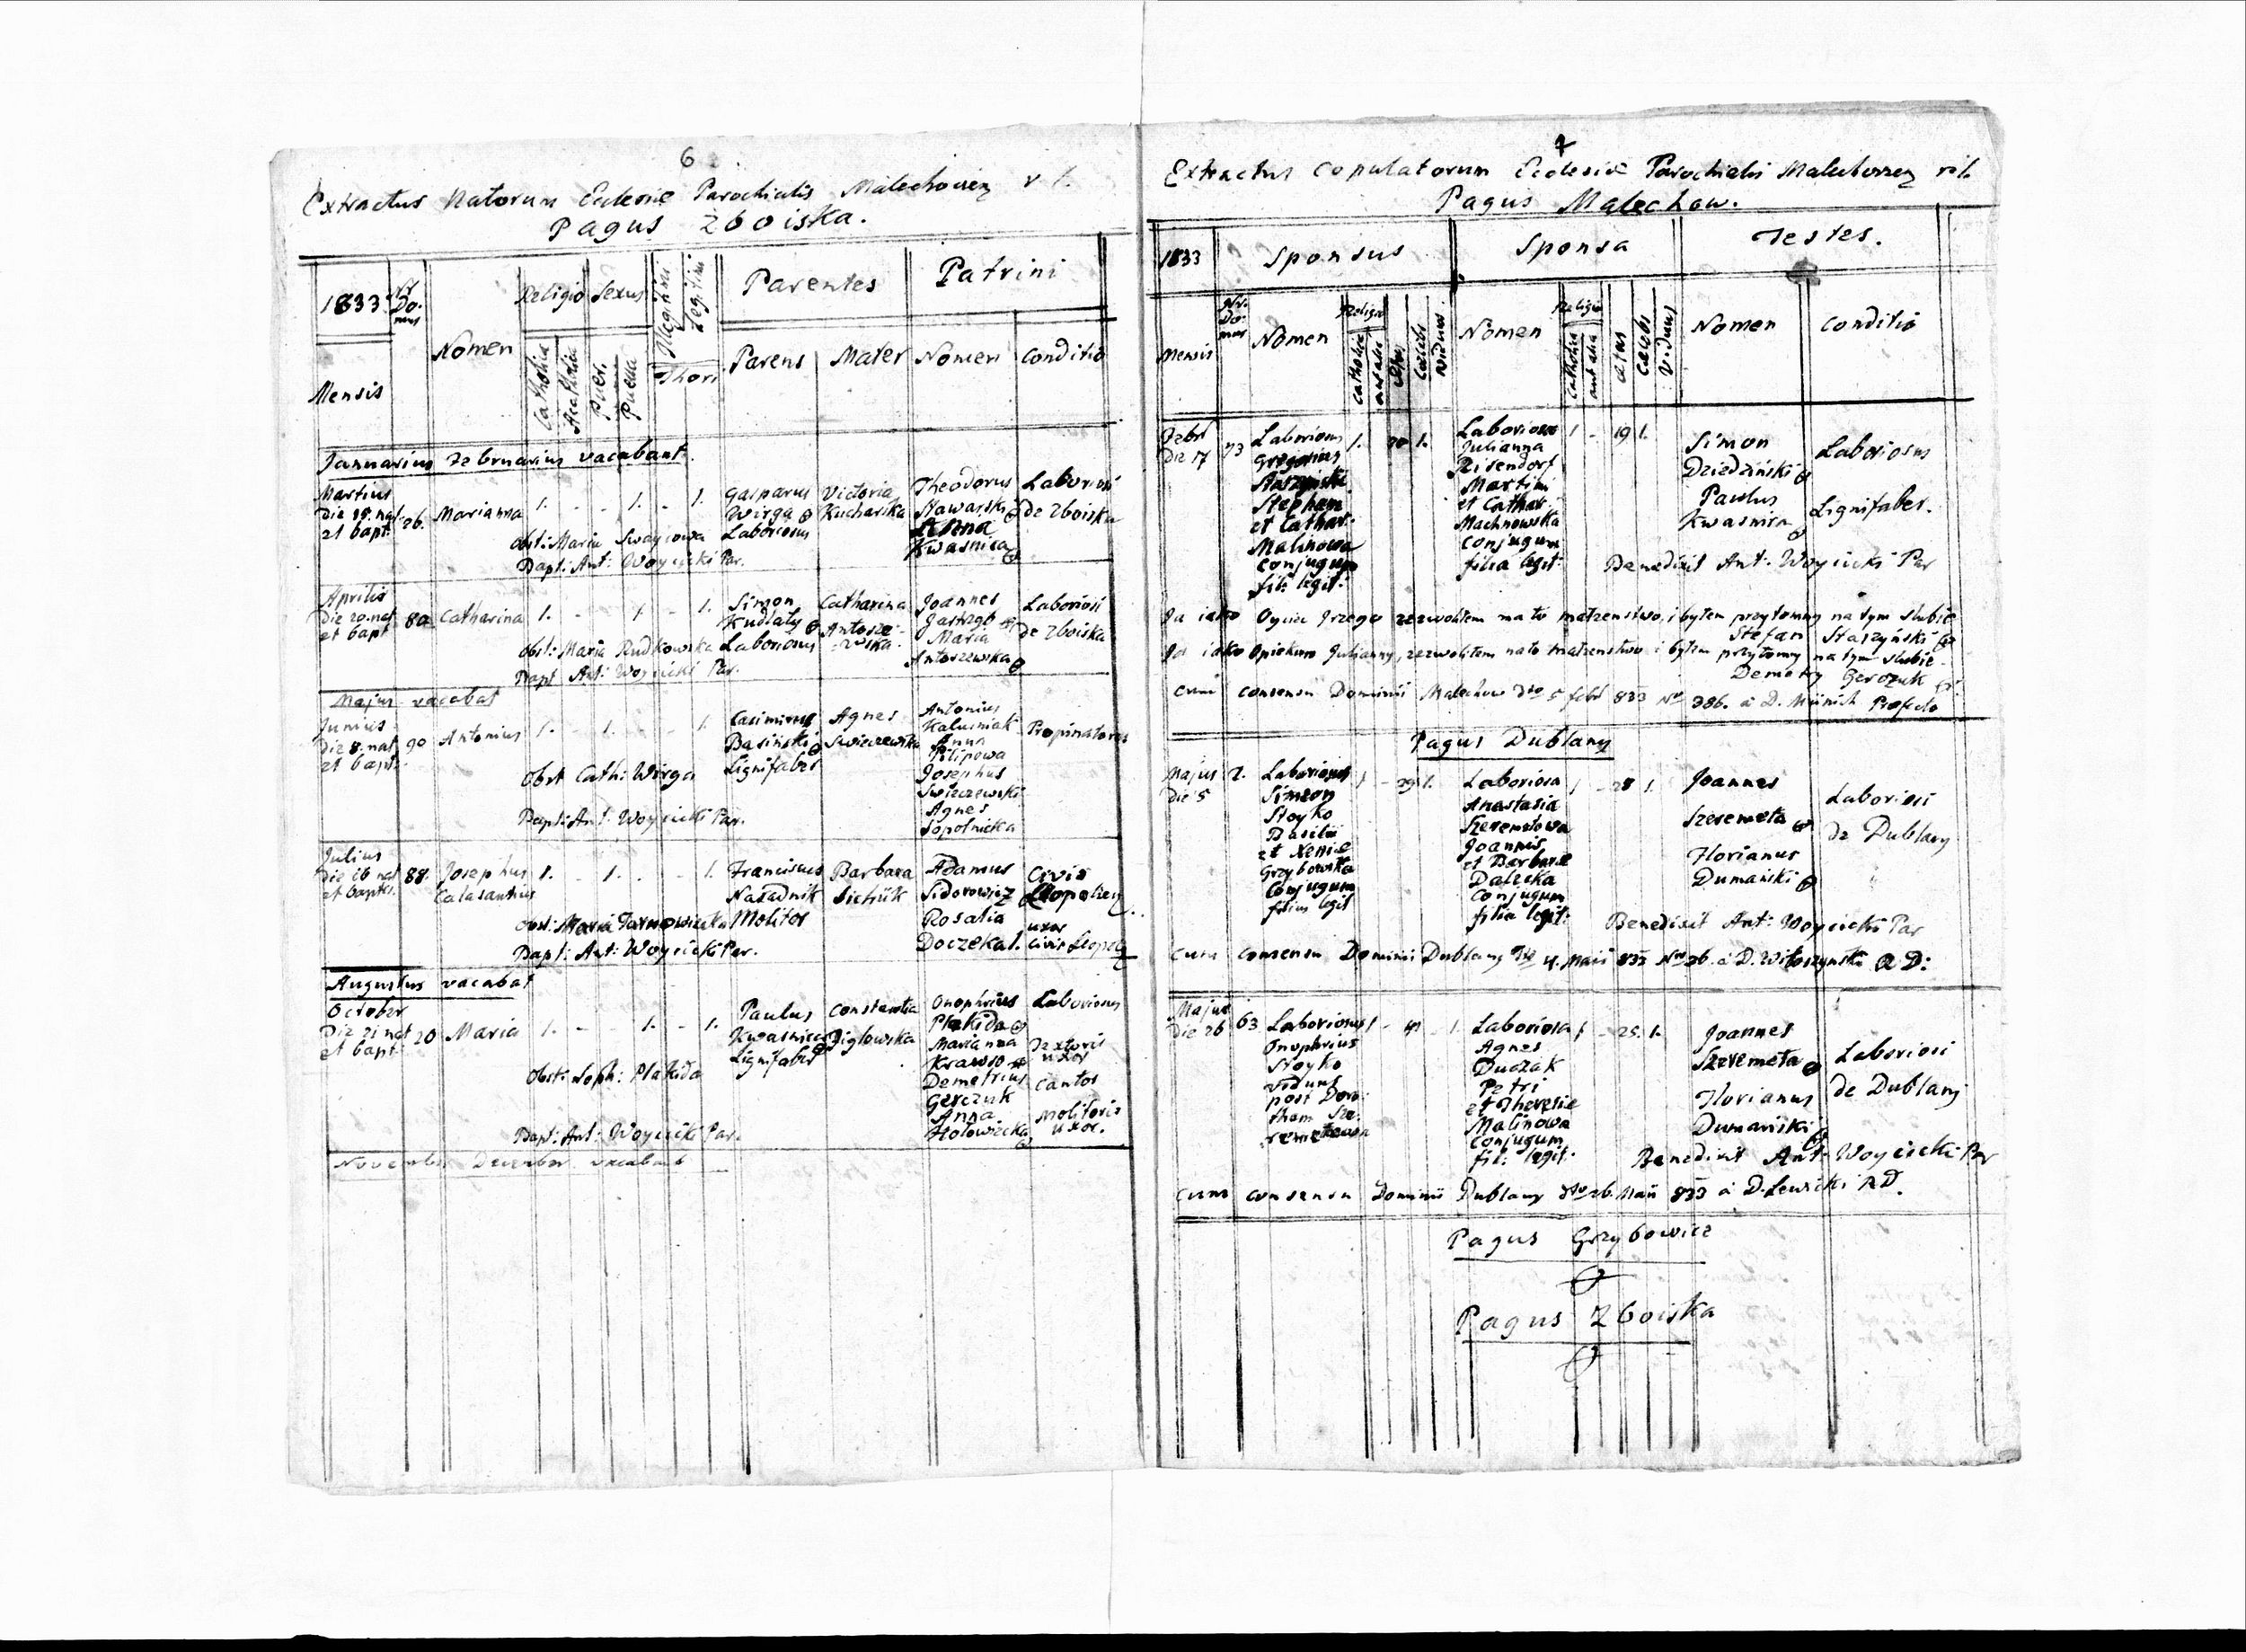 6
Extractus Natorum Ecclesiae Parochialis Malechoviens r. l.
Pagus Zboiska.
1833 Nr Do: mus Nomen Religio Sexus Illegitimi Legitimi Parentes Patrini
Mensis Catholica Acatholica Puer. Puella Thori Parens Mater Nomen Conditio
Januarius Februarius vacabant.
Martius Gasparus Victoria Theodorus Laboriosi
die 18. nat 26. Marianna 1. - - 1. - 1. Wirga Kucharska Nawarski de Zboiska
et bapt. Laboriosus
Obst: Maria
Kwasnica
Bapt: Ant: Woycicki Par.
Aprilis Simon Catharina Joannes Laboriosi
die 20. nat 80 Catharina 1. - - 1 - 1. Kudlaty Antosze- Jastrzęb de Zboiska
et bapt Laboriosus wska. Maria
Obst: Maria Rudkowska Antoszewska
Bapt Ant: Woycicki Par.
Majus vacabat
Junius Casimirus Agnes Antonius
die 8. nat 90 Antonius 1. - 1. - - 1. Basinski Swieczewska Kalusniak Propinatores
et bapt. Lignifaber Anna
Filipowa
Obst Cath: Wirga Josephus
Swieczewski
Bapt: Ant: Woycicki Par. Agnes
Sopotnicka
Julius Franciscus Barbara Adamus Civis
die 26 nat 88. Josephus 1. - 1. - - 1. Naradnik Sichrik Sidorowicz Leopolien
et bapts. Calasantius Molitor Rosalia uxor
Obst: Maria Tarnowiecka Doczekal. Civis Leopol
Bapt: Ant: Woycicki Par.
Augustus vacabat
October Paulus Constantia Onophrius Laboriosus
Die 21 nat 20 Maria 1. - - 1. - 1. Kwasnica Diglowska Plakida
et bapt. Lignifaber Marianna Textoris
uxor
Obst: Soph: Plakida Demetrius Cantor
Gerczuk
Anna Molitoris
Bapt: Ant: Woycicki Par. Hołowiecka uxor.
November December vacabant
7
Extractus Copulatorum Ecclesiae Parochialis Malechoviens rit.
Pagus Malechow.
1833 Sponsus Sponsa Testes.
Mensis Nr. Do: mus Nomen Religio Catholica Aetas Caelebs Viduus Nomen Religio Catholica Aetas Caelebs Vidua Nomen Conditio
Febr 73 Laboriosus 1. 1. Laboriosa 1 - 19 1. Simon Laboriosus
Die 17 Gregorius Julianna Dziedziński
Staszynski Reisendorf Paulus Lignifaber.
Stephani Martini Kwasnica
et Cathar: et Cathar:
Malinowa Machnowska
Conjugum Conjugum
fili: legit: filia legit: Benedixit Ant: Woycicki Par
Ja iako Oyciec Grzego zezwoliłem na to małzenstwo, i byłem przytomny na tym slubie
Stefan Staszyński
Ja iako Opiekun Julianny, zezwoliłem na to małzenstwo i byłem przytomny na tym slubie
Demetry Gerczuk
Cum consensu Dominii Malechow dto 5 febr 833 Nro 386. a D. Münich Prefecto
Pagus Dublany
Majus 2. Laboriosus 1 - 29 1. Laboriosa 1 - 28 1. Joannes Laboriosi
die 5 Simeon Anastasia Szeremeta de Dublany
Stoyko Szeremetowa Florianus
Basilii Joannis Dumański
et Xenie et Barbarae
Grzybowska Dalecka
Conjugum Conjugum
filius legit filia legit: Benedixit Ant: Woycicki Par
Cum consensu Dominii Dublany dto 4. Maii 833 Nro 26. a D. Witoszynski AD:
Majus 63 Laboriosus 1 - 41 - 1. Laboriosa 1 - 25. 1. Joannes
die 26 Onophrius Agnes Szeremeta Laboriosi
Stoyko Duczak Florianus de Dublany
viduus Petri Dumański
post Doro: et Theresie
tham Sze: Malinowa
remetowa Conjugum
fil: legit: Benedixit Ant: Woycicki Par
Cum consensu Dominii Dublany dto 26. Maii 833 a D. Lewicki AD.
Pagus Grzybowice
Pagus Zboiska